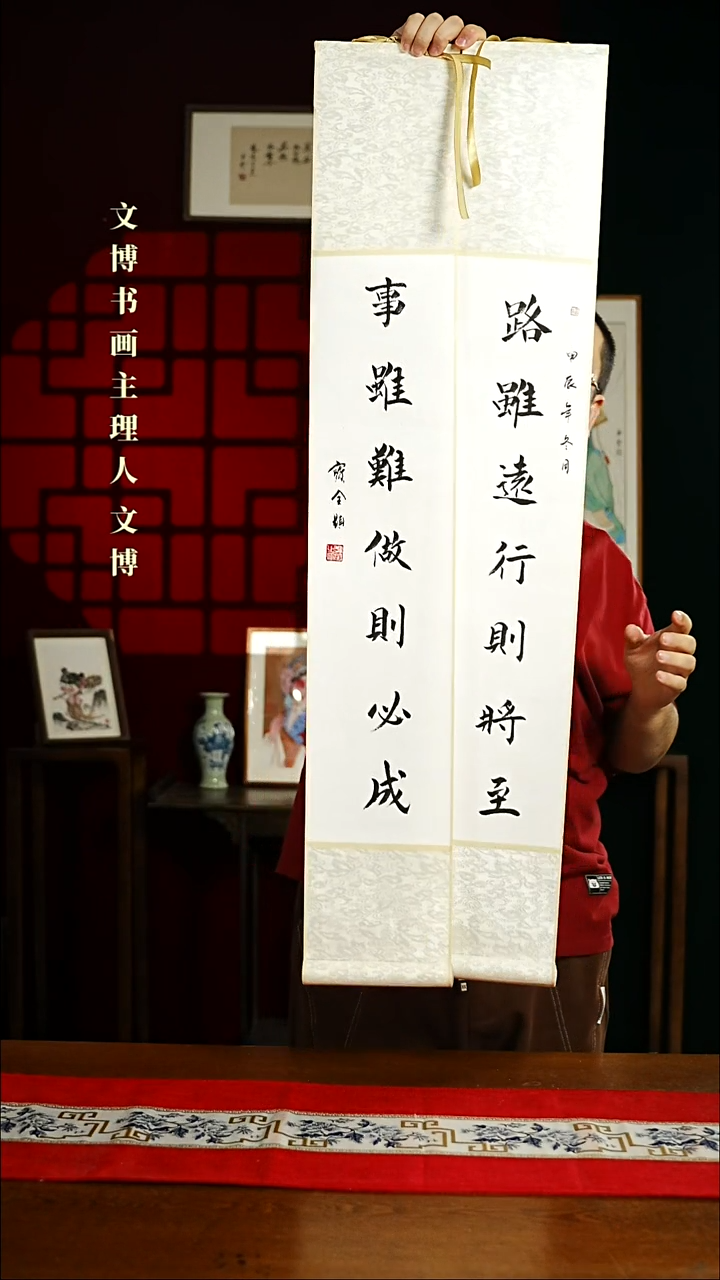 文博书画主理人文博
甲辰年冬月
路雖遠行則將至
事雖難做則必成